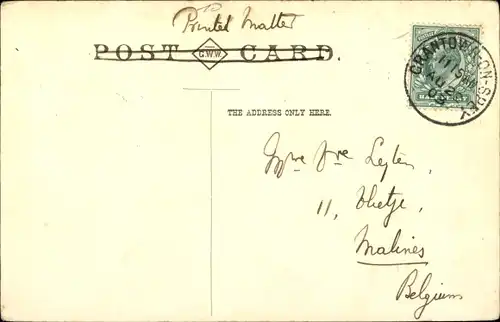 Printed Matter
POST G.W.W. CARD.
GRANTOWN-ON-SPEY
AU 26
THE ADDRESS ONLY HERE.
Leyten,
11, Vlietje,
Malines
Belgium